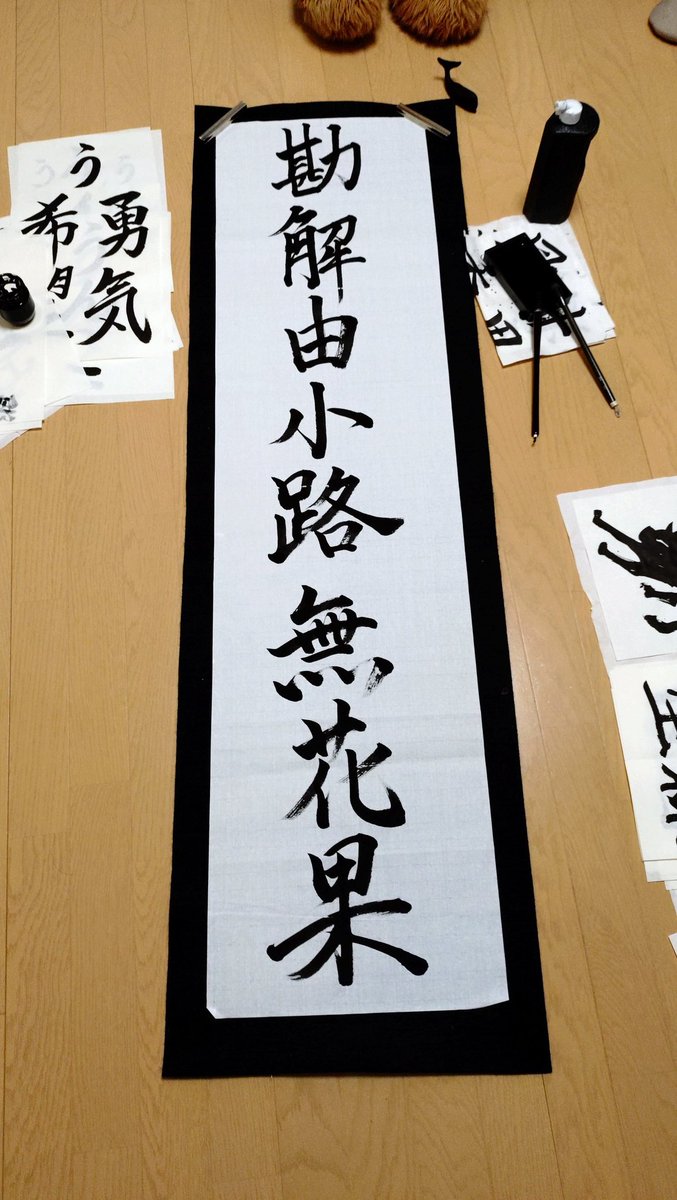 勘解由小路無花果
勇気
希
う